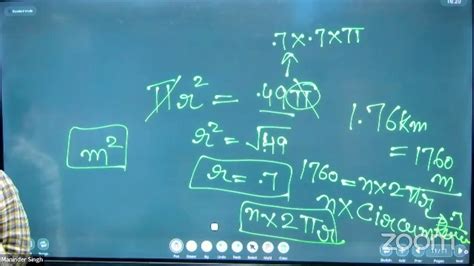 .7×.7×π
πr² = .49π
r² = √.49
r = .7
m²
1.76km
= 1760 m
1760 = n×2πr
n×Circumference
n×2πr
zoom
Maninder Singh